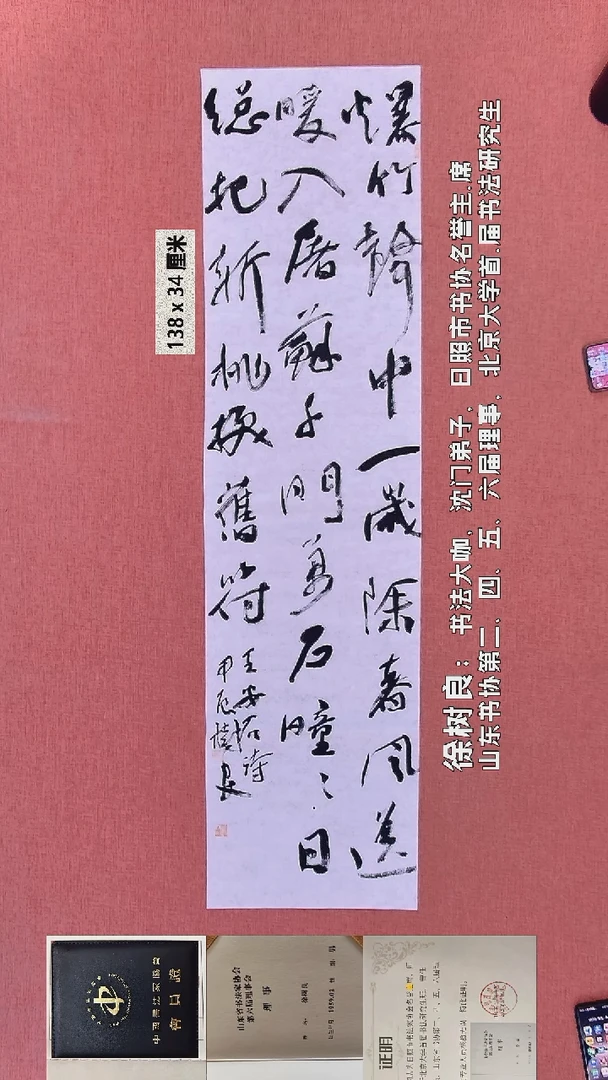 爆竹聲中一歲除春風送
暖入屠蘇千門萬石曈〻日
總把新桃換舊符
王安石詩
甲辰樹良
138 x 34 厘米
徐树良：书法大咖，沈门弟子，日照市书协名誉主.席
山东书协第二、四、五、六届理事，北京大学首.届书法研究生
中國書法家協會
會員證
山东省书法家协会
第六届理事会
理事
证明